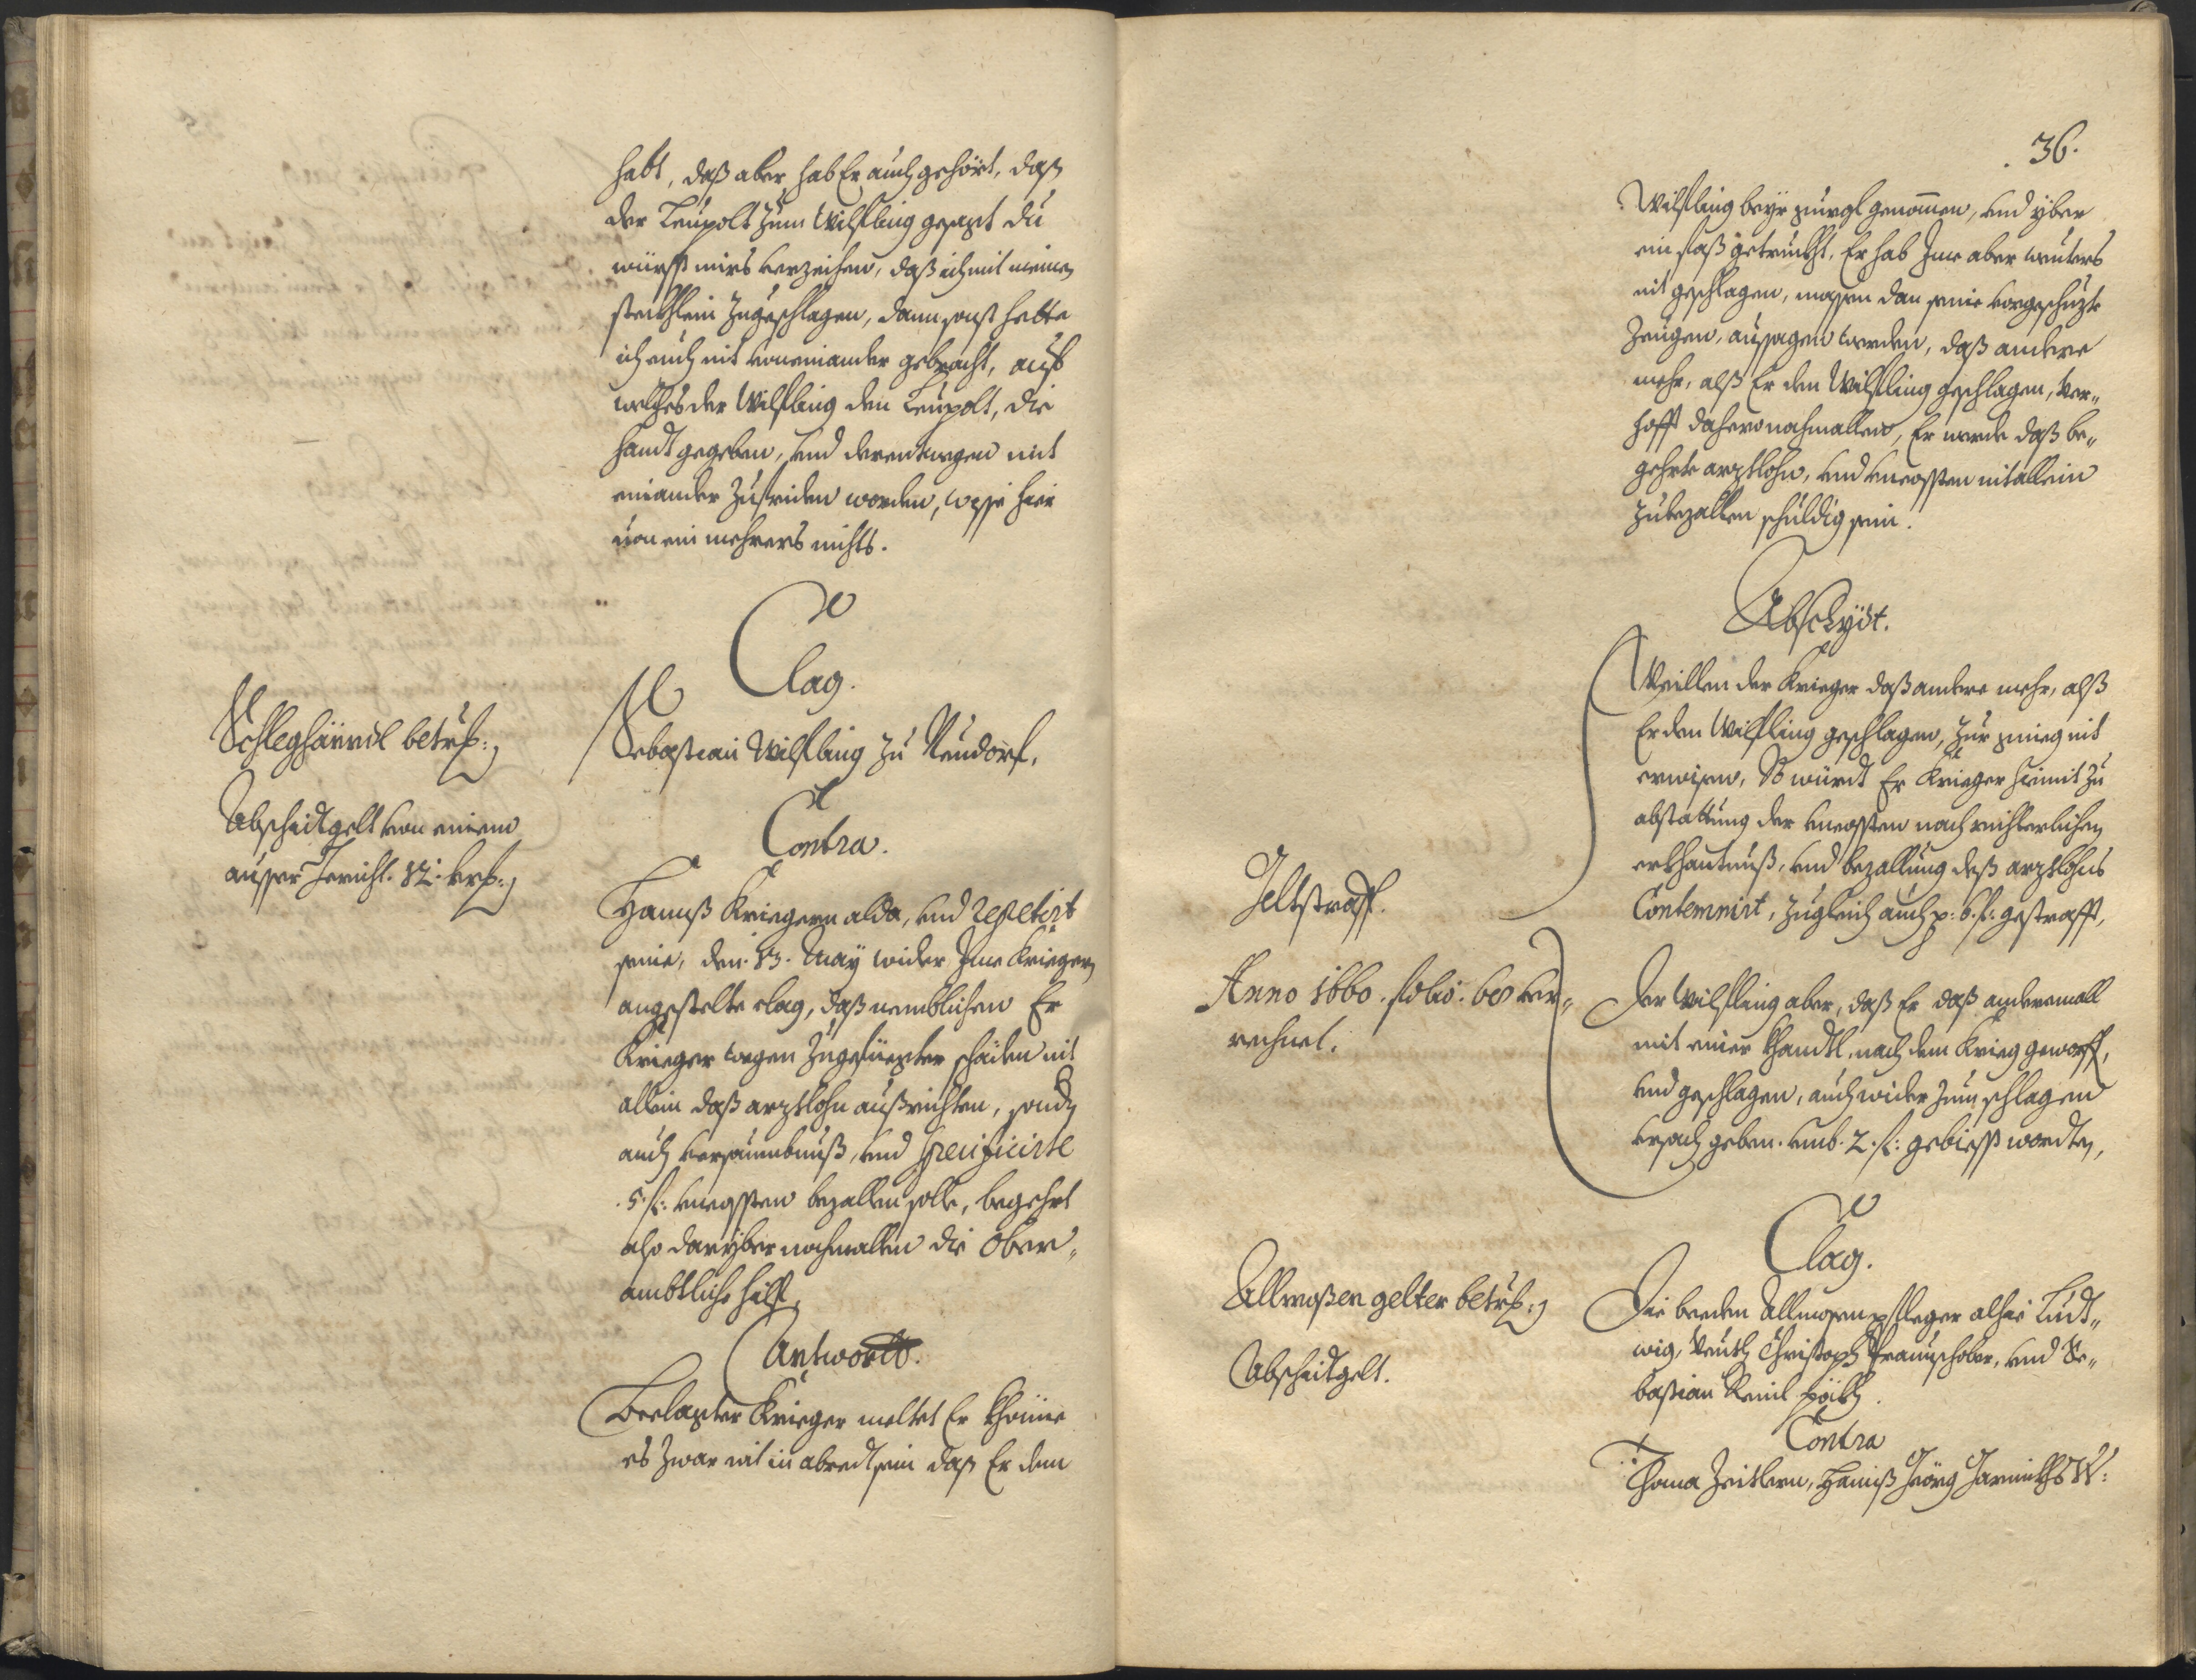 habt, daß aber hab Er auch gehört, daß
der Leupolt zum Wilfling gesagt du
würst mirs verzeihen, daß ich mit meinen
stekhlein zugeschlagen, dann sonst hette
ich euch nit voneinander gebracht, auf
welches der Wilfling den Leupolt, die
handt gegeben, und derentwegen mit
einander zufriden worden, wisse hier
von ein mehrers nichts.
Clag.
Schleghändl betrf:
Sebastian Wilfling zu Neudorf,
Abschidtgelt von einem
ausser Gericht. 12. krz:
Contra.
Hannß Kriegern alda, und repetirt
seine, den 13. May wider Ime Kriegern
angestelte clag, daß nemblichen Er
Krieger wegen zugefüegter schäden nit
allein daß arztlohn außrichten, sondern
auch versaumbnuß, und specificirte
.5. fl: uncossten bezallen solle, begehrt
also darüber nochmallen die Ober-
ambtliche hilf
Antwortt.
Beclagter Krieger meltet Er khönne
es zwar nit in abredt sein daß Er dem
36.
Wilfling beyr genommen, und yber
ein faß getrukht, Er hab Ime aber weiters
nit geschlagen, massen dan seine vorgeschuzte
Zeugen, aussagen werden, daß andere
mehr, alß Er den Wilfling geschlagen, ver-
hofft dahero nochmallen, Er werde daß be-
gehrte arztlohn, und uncossten nit allein
zubezallen schuldig sein.
Abschydt.
Weillen der Krieger daß andere mehr, alß
Er den Wilfling geschlagen, zur gnieg nit
erwisen, So würdt Er Krieger hiemit zu
abstattung der uncossten nach richterlichen
erkhantnuß, und bezallung deß arztlohns
Contemnirt, zugleich auch p: 6. fl: gestrafft,
Geltstraff.
Anno 1660. folio: 60 ver-
rechnet.
Der Wilfling aber, daß Er daß anderemall
mit einer khandtl, nach dem Krieg geworff,
und geschlagen, auch wider zum schlagen
ursach geben. umb. 2. fl: gebiesst worden,
Clag.
Allmoßen gelter betrf:
Abschidtgelt.
Die beeden Allmosenpfleger alhie Ludt-
wig, Christoph und Se-
bastian
Contra
Thoma Zeitlern, Hannß Geörg